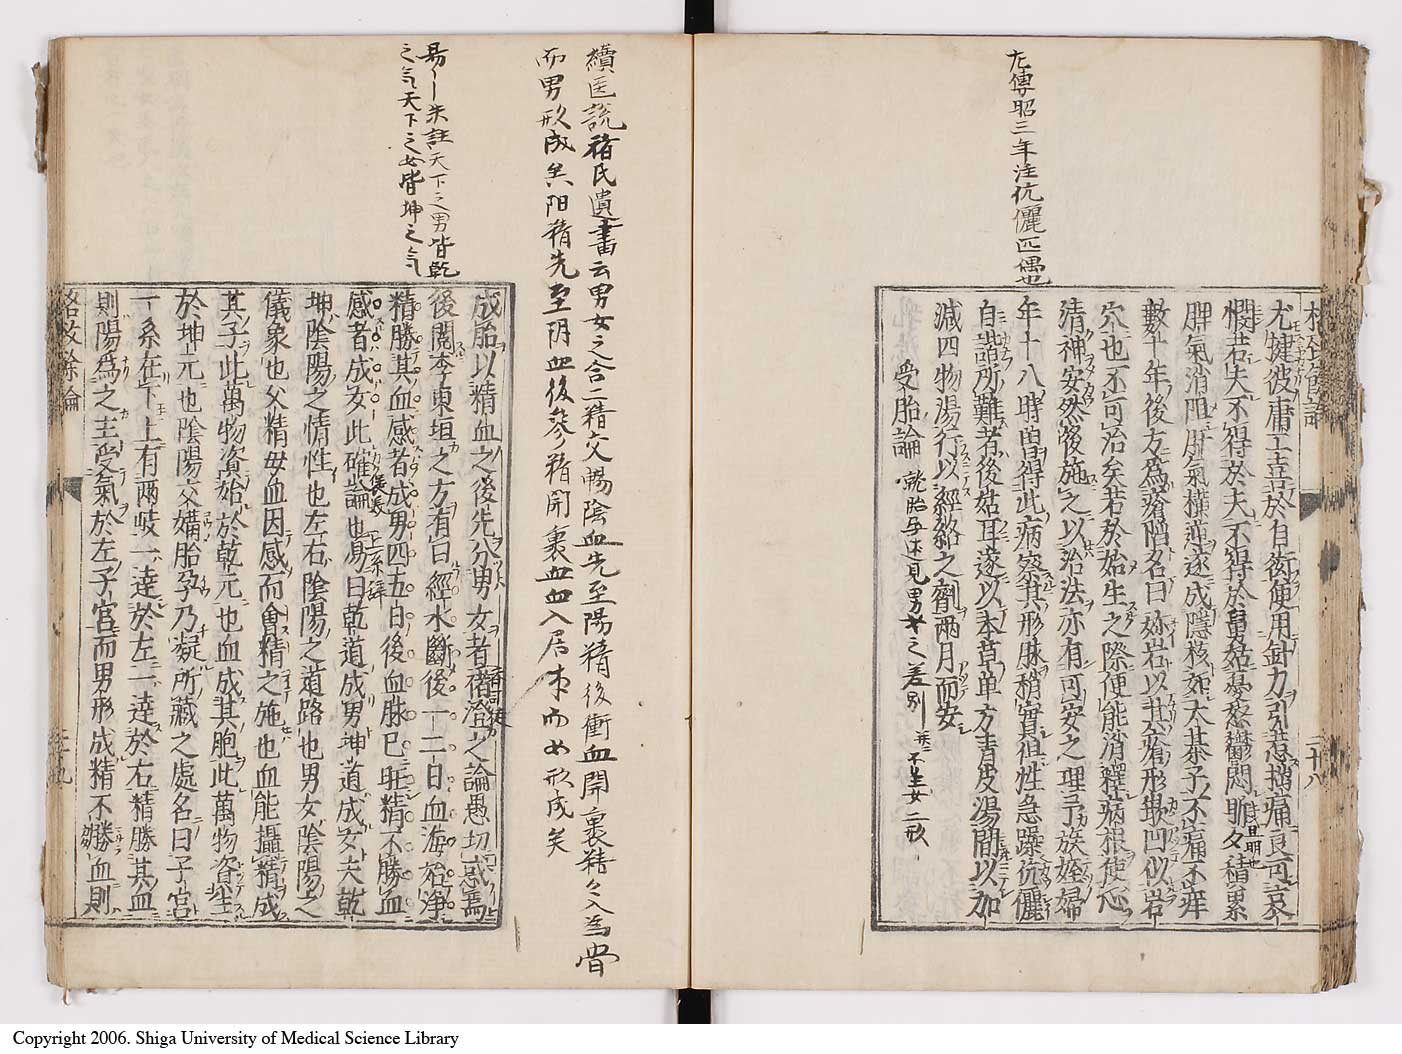 左傳昭三年注伉儷匹偶也
格致餘論
二十八
尤揵彼庸工喜於自衒便用針刀引惹拙痛良可哀
憫若夫不得於夫不得於舅姑憂怒鬱悶昕夕積累
脾氣消阻肝氣橫逆遂成隱核如大棊子不痛不痒
數十年後方為瘡陷名曰妳岩以其瘡形嵌凹似岩
穴也不可治矣若於始生之際便能消釋病根使心
清神安然後施之以治法亦有可安之理予族姪婦
年十八時曽得此病察其形脉稍實但性急躁伉儷
自諧所難者後姑耳遂以本草单方青皮湯間以加
減四物湯行以經絡之劑兩月而安
受胎論
續医説褚氏遺書云男女之合二精交暢陰血先至陽精後衝血開裹精々入為骨
而男形成矣阳精先至阴血後參精開裹血血入居本而女形成矣
易 朱註天下之男皆乾
之気天下之女皆坤之气
成胎以精血之後先分男女者褚澄之論愚切惑焉
後閱李東垣之方有曰經水斷後一二日血海始淨
精勝其血感者成男四五日後血脉已旺精不勝血
感者成女此確論也易曰乾道成男坤道成女夫乾
坤陰陽之情性也左右陰陽之道路也男女陰陽之
儀象也父精母血因感而會精之施也血能攝精成
其子此萬物資始於乾元也血成其胞此萬物資生
於坤元也陰陽交媾胎孕乃凝所藏之處名曰子宮
一系在下上有兩岐一達於左一達於右精勝其血
則陽為之主受氣於左子宮而男形成精不勝血則
格致餘論
二十九
Copyright 2006. Shiga University of Medical Science Library